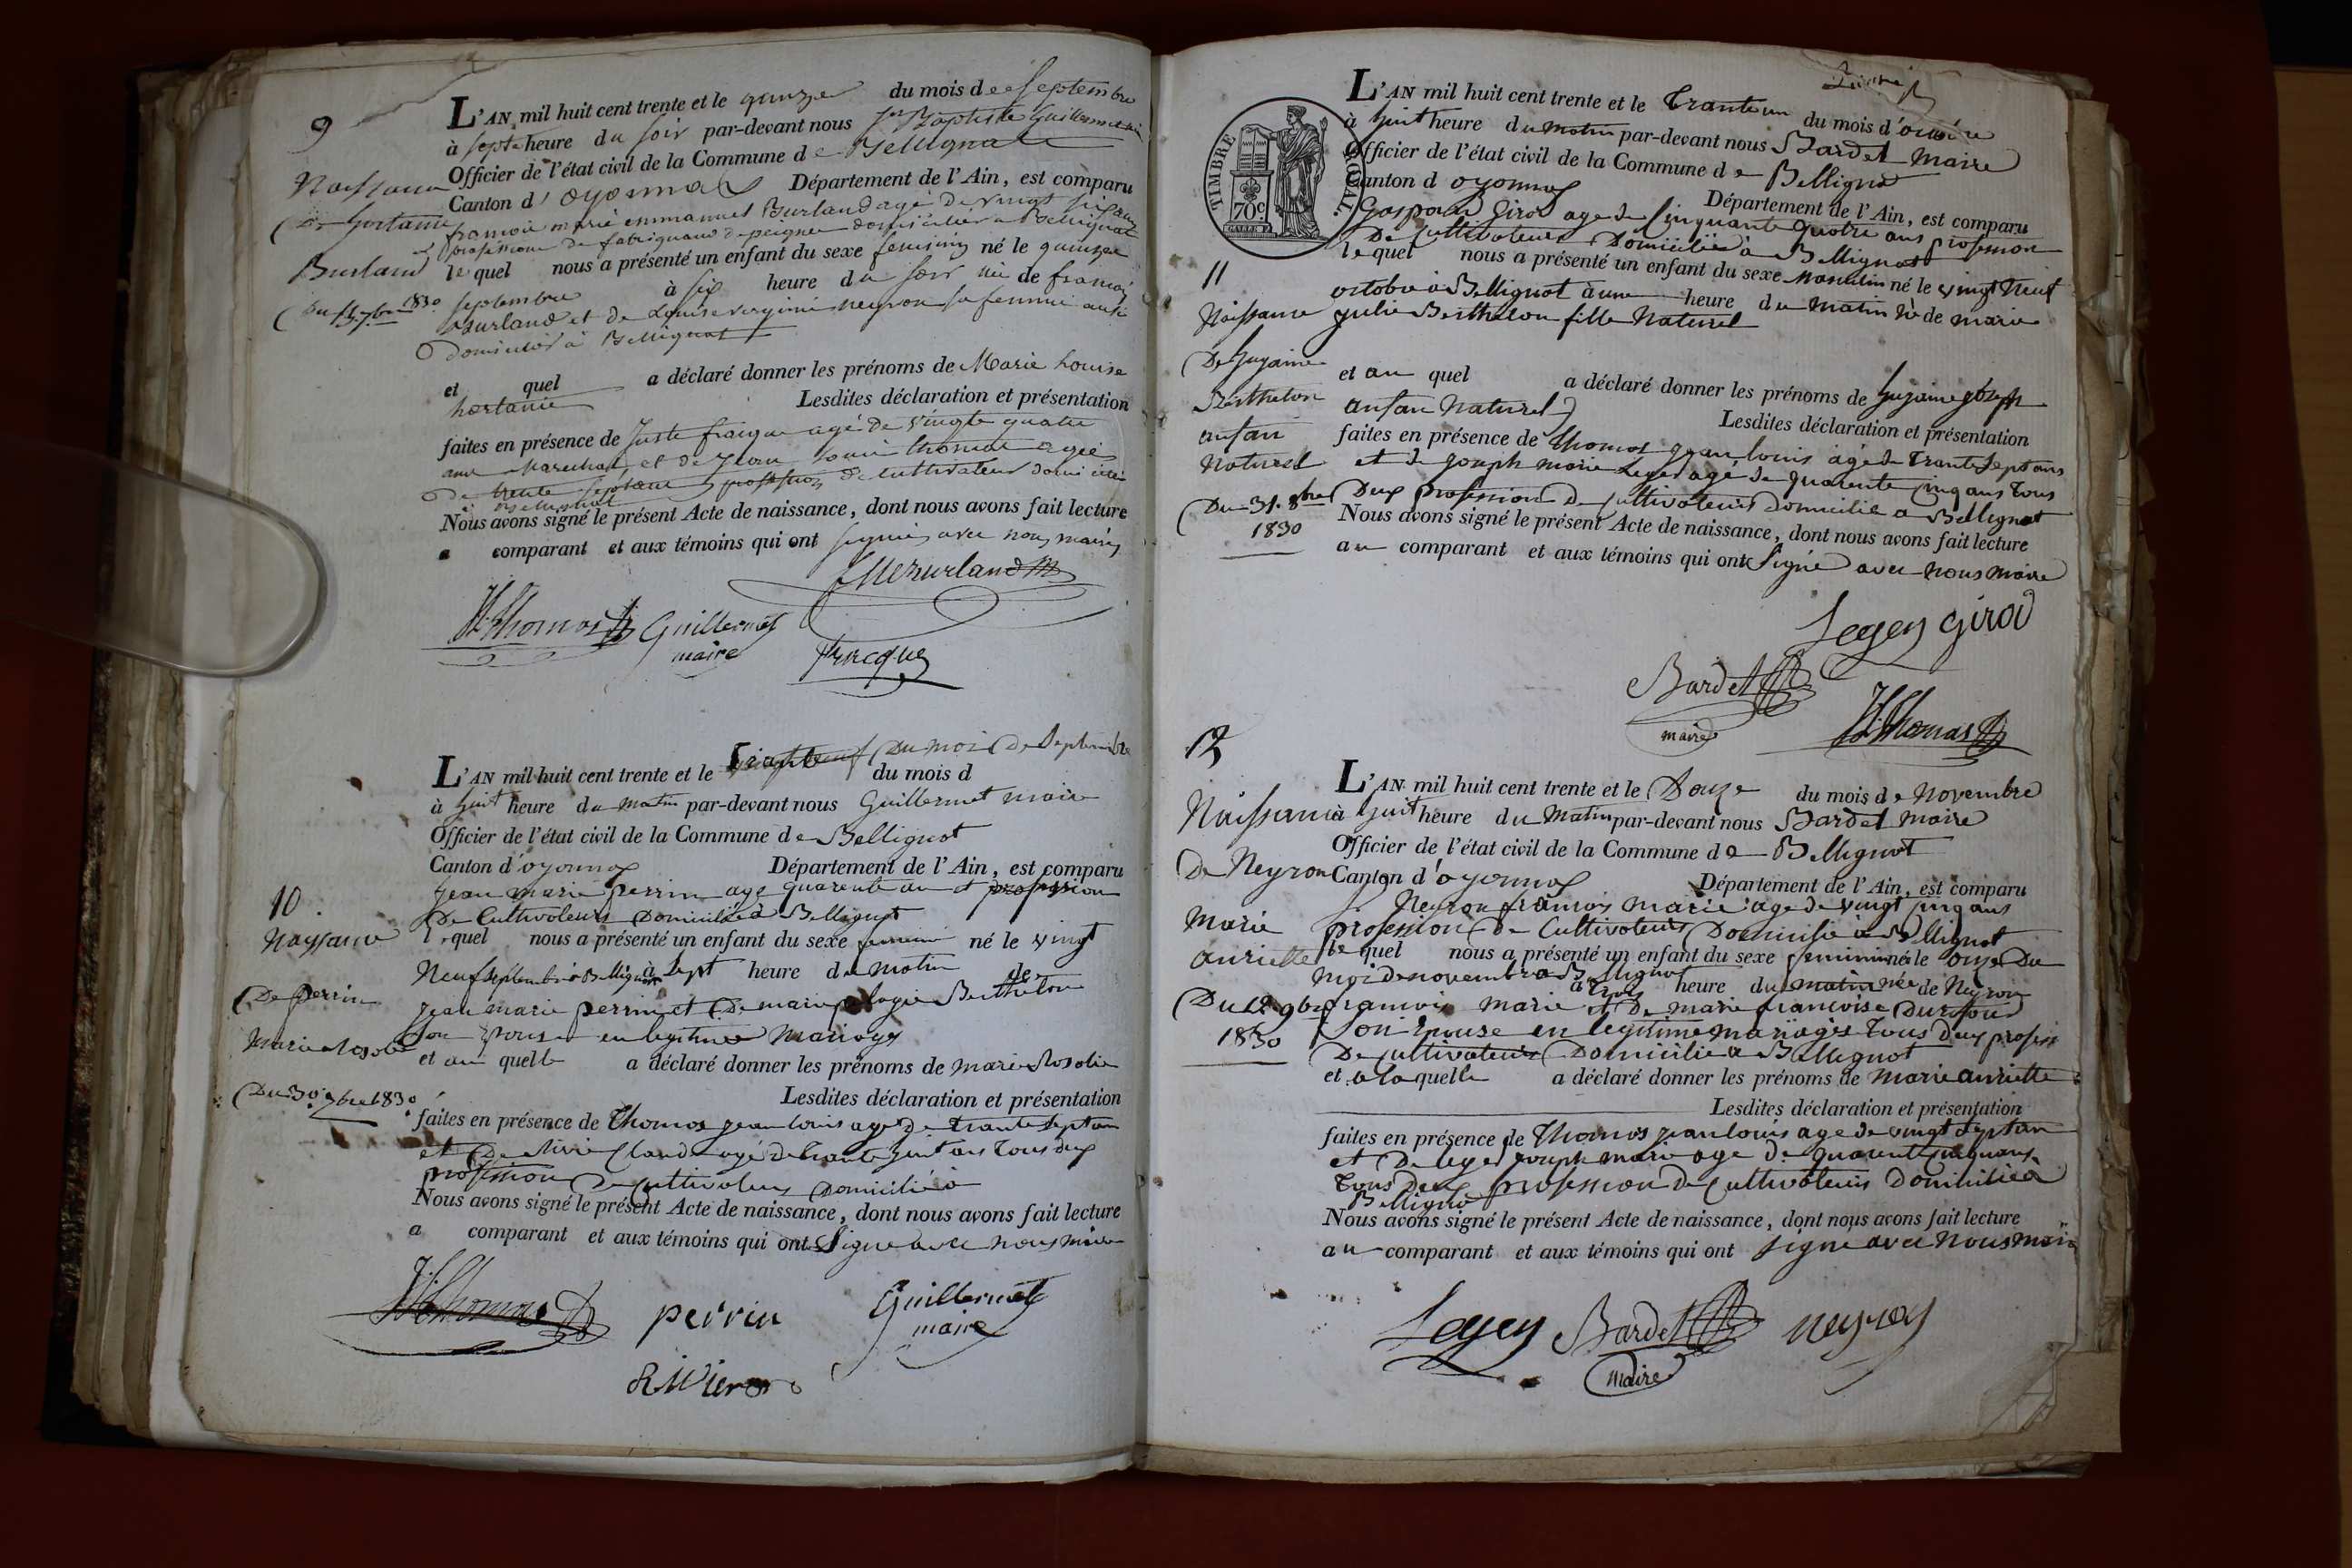 9
L'AN mil huit cent trente et le quinze du mois de Septembre
à sept heure du soir par-devant nous Jn Baptiste Guillermet
Officier de l'état civil de la Commune de Bellignat
Canton d'oyonnax Département de l'Ain, est comparu
françois marie emmanuel Burland agé de vingt six ans
profession de fabriquand de peigne domicilié a Bellignat
lequel nous a présenté un enfant du sexe feminin né le quinze
septembre à six heure du soir née de françois
Burland et de Louise virginie neyron sa femme aussi
domicilié à Bellignat
et quel a déclaré donner les prénoms de Marie Louise
hortanie Lesdites déclaration et présentation
faites en présence de Juste fraique agé de vingte quatre
ans Marechal et de Jean Louis thomas agée
de trente septans profession de cultivateur domicilié
à Bellignat
Nous avons signé le présent Acte de naissance, dont nous avons fait lecture
a comparant et aux témoins qui ont signés avec nous maire
Naissance
De hortanie
Burland
Du 15. 7bre 1830
Burland
Thomas Guillermet
maire
L'AN mil huit cent trente et le Trante Du mois De Septembre
du mois d
à huit heure du matin par-devant nous Guillermet maire
Officier de l'état civil de la Commune de Bellignot
Canton d'oyonnax Département de l'Ain, est comparu
Jean marie perrin age quarente an et profession
De Cultivoteurs Domicilié à Bellignot
lequel nous a présenté un enfant du sexe feminin né le vingt
Neuf septembre à Bellignot à sept heure du matin de
jean marie perrin et De marie Berthelon
Son Epouse en legitime Mariage
et au quelle a déclaré donner les prénoms de marie Rosolie
Lesdites déclaration et présentation
faites en présence de Thomos jean louis age De trante septans
et De Rivire Claude agé De trante huit ans tous deux
profession De Cultivoteurs Domicilié à
Nous avons signé le présent Acte de naissance, dont nous avons fait lecture
a comparant et aux témoins qui ont Signe avec nous maire
10.
Nayssance
De perrin
Marie Rosolie
Du 30 7bre 1830
Thomas perrin Guillermet
maire
Rivier
TIMBRE ROYAL.
70c
L'AN mil huit cent trente et le Trante un du mois d'octobre
à huit heure du matin par-devant nous Bardet Maire
Officier de l'état civil de la Commune de Bellignot
Canton d oyonnax Département de l'Ain, est comparu
Gaspard Girod age de Cinquante quatre ans profession
De Cultivoteurs Domicilié à Bellignot
lequel nous a présenté un enfant du sexe Masculin né le vingt Neuf
octobre à Bellignot à une heure du matin né de marie
julie Berthelon fille Naturel
et au quel a déclaré donner les prénoms de joseph
anfan Naturel Lesdites déclaration et présentation
faites en présence de Thomos jean louis agé de trante septans
et de joseph marie Leger agé de quarente cinq ans tous
Deux profession De Cultivoteurs Domicilie a Bellignot
Nous avons signé le présent Acte de naissance, dont nous avons fait lecture
au comparant et aux témoins qui ont Signé avec nous maire
11
Naissance
De
Berthelon
anfan
Naturel
Du 31. 8bre
1830
Leger Girod
Bardet
maire
Thomas
12
L'AN mil huit cent trente et le Douze du mois de Novembre
à huit heure du Matin par-devant nous Bardet Maire
Officier de l'état civil de la Commune de Bellignot
Canton d'oyonnax Département de l'Ain, est comparu
Neyron françois marie age de vingt cinq ans
profession de Cultivoteurs Domicilié à Bellignot
lequel nous a présenté un enfant du sexe feminin né le onze Du
moi De novembre a Bellignot a trois heure du matin née de Neyron
francois marie et De marie francoise Durafour
Son Epouse en legitime mariage tous Deux profession
De Cultivateurs Domicilie a Bellignot
et a la quelle a déclaré donner les prénoms de Marie anriette
Lesdites déclaration et présentation
faites en présence de Thomos jean louis age de vingt septan
et De leger joseph marie age De quarente cinq ans
tous Deux profession De Cultivoteurs Domicilié a
Bellignot
Nous avons signé le présent Acte de naissance, dont nous avons fait lecture
au comparant et aux témoins qui ont signe avec nous maire
Naissance
De Neyron
Marie
anriette
Du 12 9bre
1830
Leger Bardet Neyron
maire